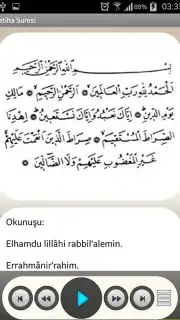 88% 03:3
atiha Suresi
بِسْمِ اللّٰهِ الرَّحْمٰنِ الرَّحِيمِ
اَلْحَمْدُ لِلّٰهِ رَبِّ الْعَالَمِينَ ۞ اَلرَّحْمٰنِ الرَّحِيمِ ۞ مَالِكِ
يَوْمِ الدِّينِ ۞ اِيَّاكَ نَعْبُدُ وَاِيَّاكَ نَسْتَعِينُ ۞ اِهْدِنَا
الصِّرَاطَ الْمُسْتَقِيمَ ۞ صِرَاطَ الَّذِينَ اَنْعَمْتَ عَلَيْهِمْ
غَيْرِ الْمَغْضُوبِ عَلَيْهِمْ وَلَا الضَّالِّينَ
Okunuşu:
Elhamdu lillâhi rabbil'alemin.
Errahmânir'rahim.